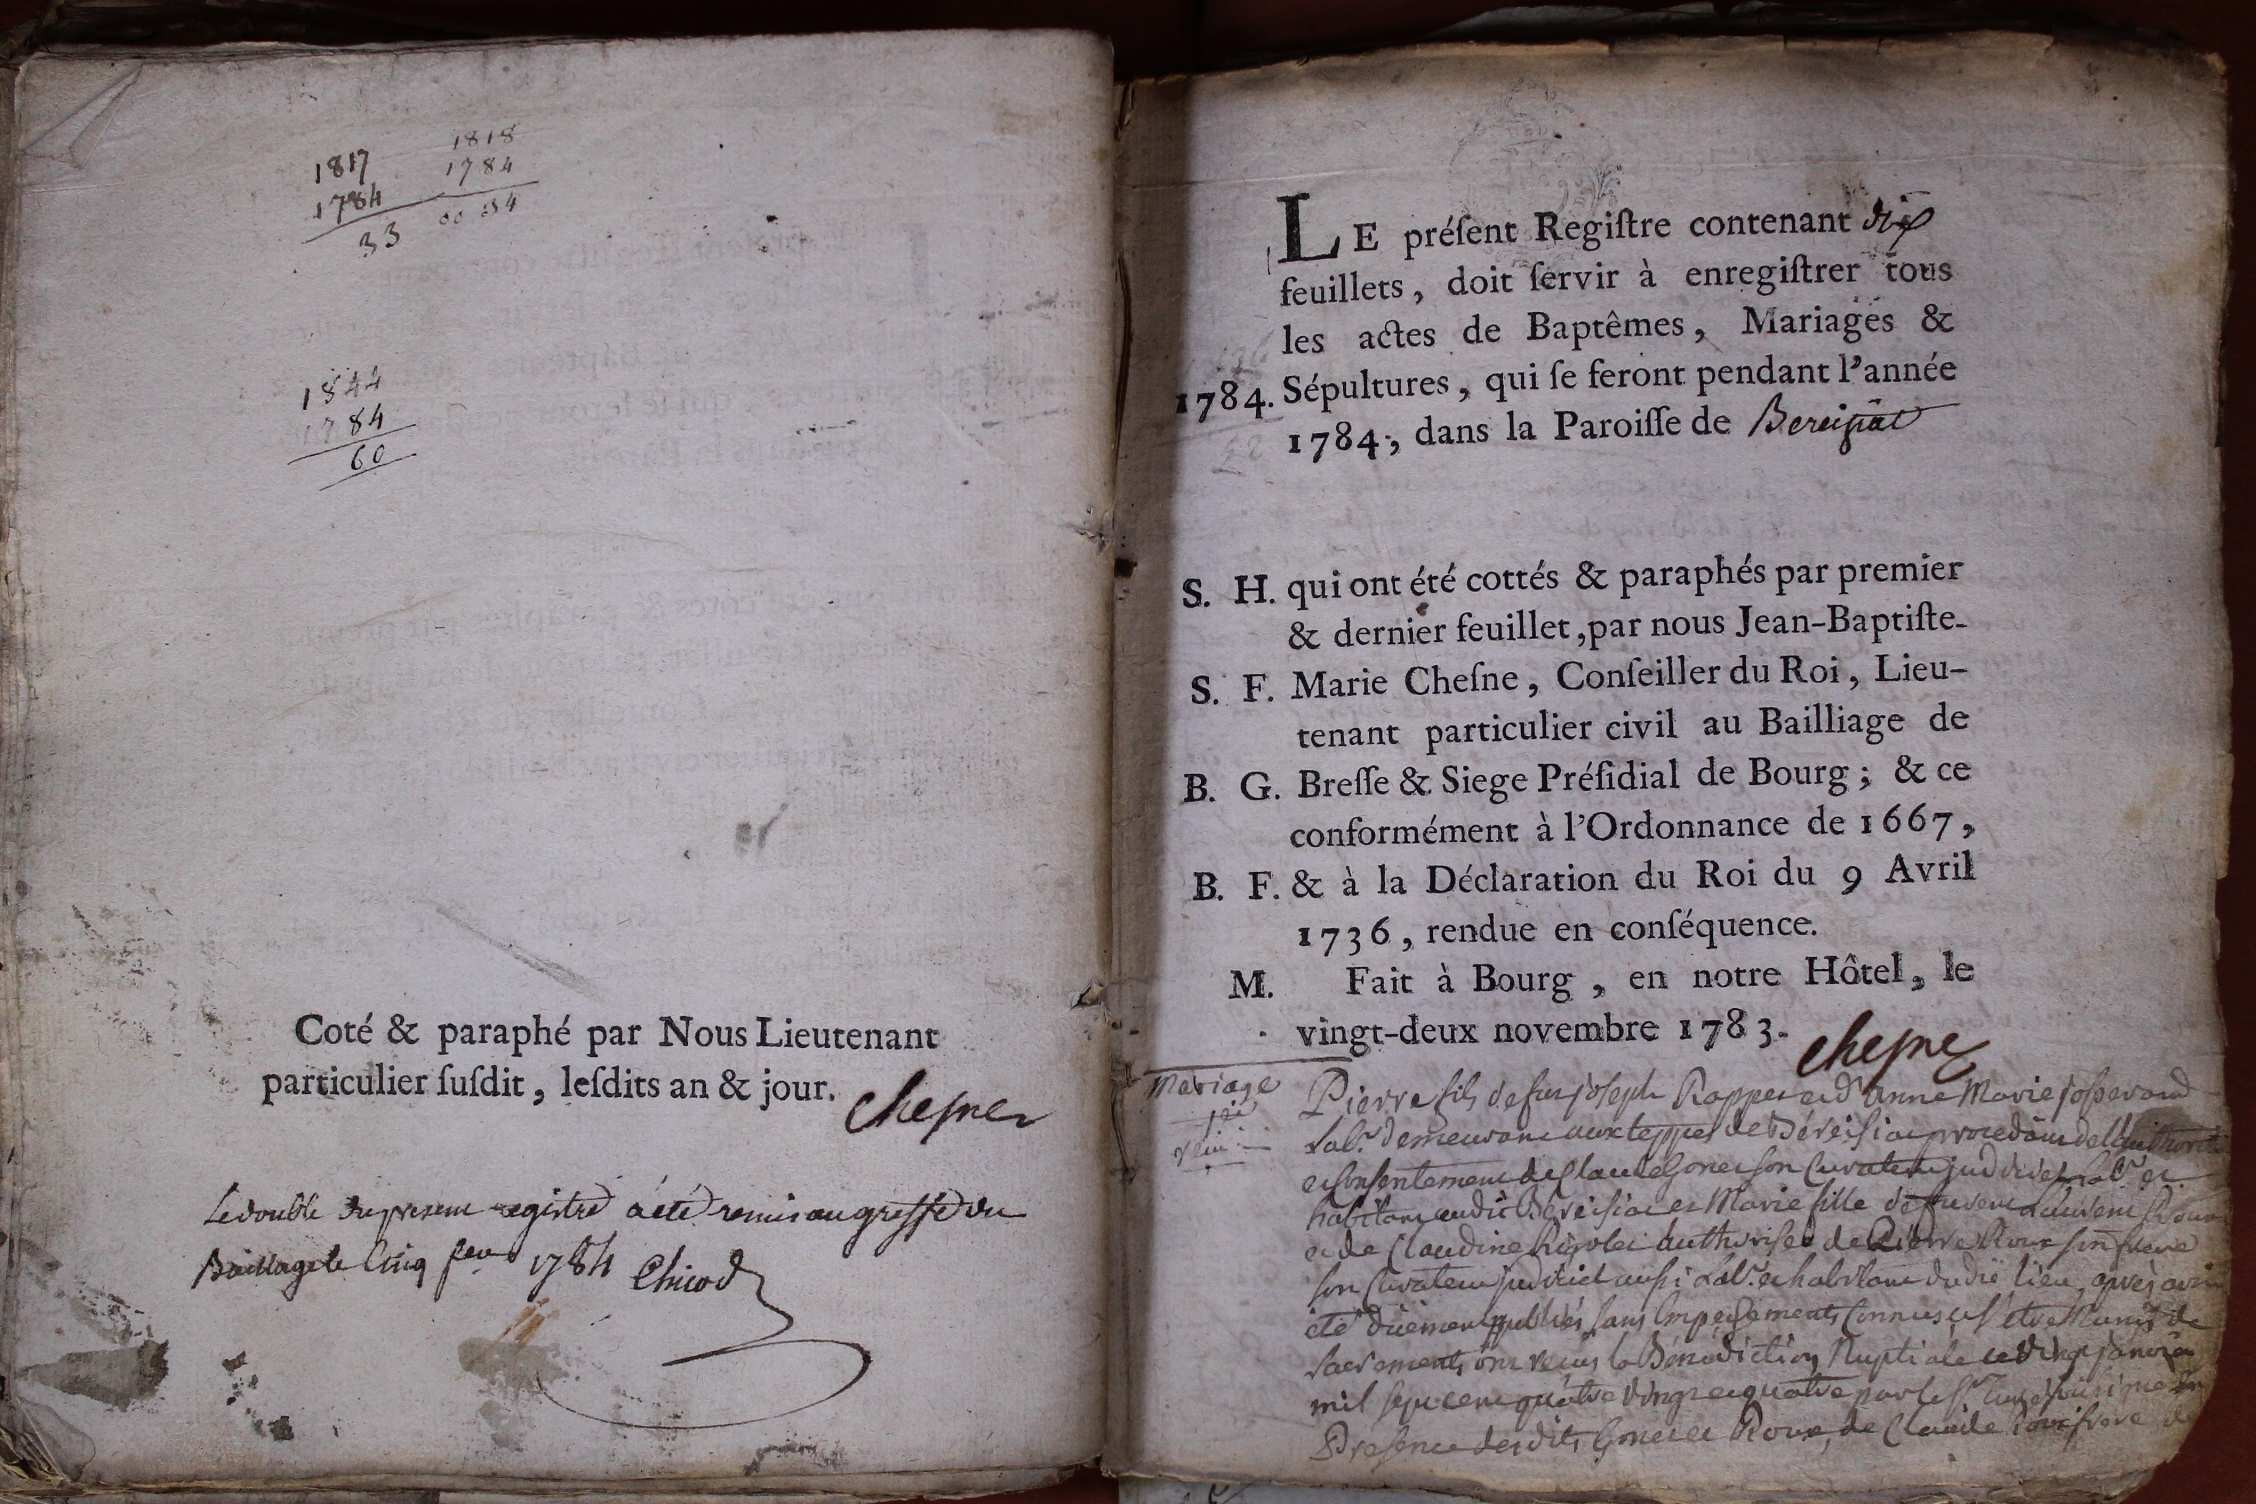 1817
1784
33
1818
1784
00 34
1844
1784
60
Coté & paraphé par Nous Lieutenant
particulier ſuſdit, leſdits an & jour. Chesne
Le double du present registre a été remis au greffe du
Baillage le Cinq 1784 Chicod
LE préſent Regiſtre contenant dix
feuillets, doit ſervir à enregiſtrer tous
les actes de Baptêmes, Mariages &
1784. Sépultures, qui ſe feront pendant l'année
1784, dans la Paroiſſe de Bereisiat
S. H. qui ont été cottés & paraphés par premier
& dernier feuillet, par nous Jean-Baptiſte-
S. F. Marie Cheſne, Conſeiller du Roi, Lieu-
tenant particulier civil au Bailliage de
B. G. Breſſe & Siege Préſidial de Bourg; & ce
conformément à l'Ordonnance de 1667,
B. F. & à la Déclaration du Roi du 9 Avril
1736, rendue en conſéquence.
M. Fait à Bourg, en notre Hôtel, le
vingt-deux novembre 1783. Chesne
Mariage
Pierre fils de feu joseph et d'anne Marie
Lab.r demeurant aux teppes de Béréisia procedant de l'authorité
et Consentement de Claude Gonet son Curateur judiciel Lab.r et
habitant audit Béréisia et Marie fille de Laurent Roux
et de Claudine authorisée de Pierre Roux son frere
son Curateur judiciel aussi Lab.r et habitant dudit lieu, après avoir
été düement publiés sans Empechements Connus et s'être Munis de
sacrements ont reçus la Bénédiction Nuptiale le vingt janvier
mil sept cent quatre vingt et quatre par le S.r Curé soussigné En
Presence desdits Gonet et Roux, de Claude frere de